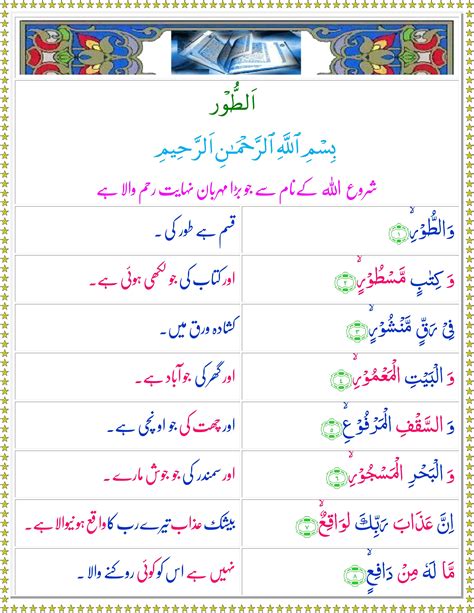 اَلطُّوْر
بِسْمِ ٱللَّهِ ٱلرَّحْمَـٰنِ ٱلرَّحِيمِ
شروع اللہ کے نام سے جو بڑا مہربان نہایت رحم والا ہے
وَالطُّوْرِۙ ۱ قسم ہے طور کی ۔
وَ كِتٰبٍ مَّسْطُوْرٍۙ ۲ اور کتاب کی جو لکھی ہوئی ہے۔
فِىْ رَقٍّ مَّنْشُوْرٍۙ ۳ کشادہ ورق میں۔
وَ الْبَيْتِ الْمَعْمُوْرِۙ ۴ اور گھر کی جو آباد ہے۔
وَ السَّقْفِ الْمَرْفُوْعِۙ ۵ اور چھت کی جو اونچی ہے۔
وَ الْبَحْرِ الْمَسْجُوْرِۙ ۶ اور سمندر کی جو جوش مارے۔
اِنَّ عَذَابَ رَبِّكَ لَوَاقِعٌۙ ۷ بیشک عذاب تیرے رب کا واقع ہونیوالا ہے۔
مَّا لَهٗ مِنْ دَافِعٍۙ ۸ نہیں ہے اس کو کوئی روکنے والا ۔